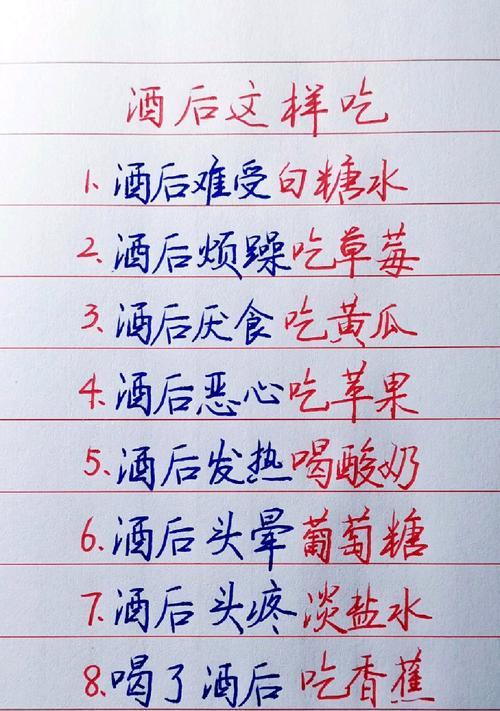 酒后这样吃
1.酒后难受白糖水
2.酒后烦躁吃草莓
3.酒后厌食吃黄瓜
4.酒后恶心吃苹果
5.酒后发热喝酸奶
6.酒后头晕葡萄糖
7.酒后头疼淡盐水
8.喝了酒后吃香蕉